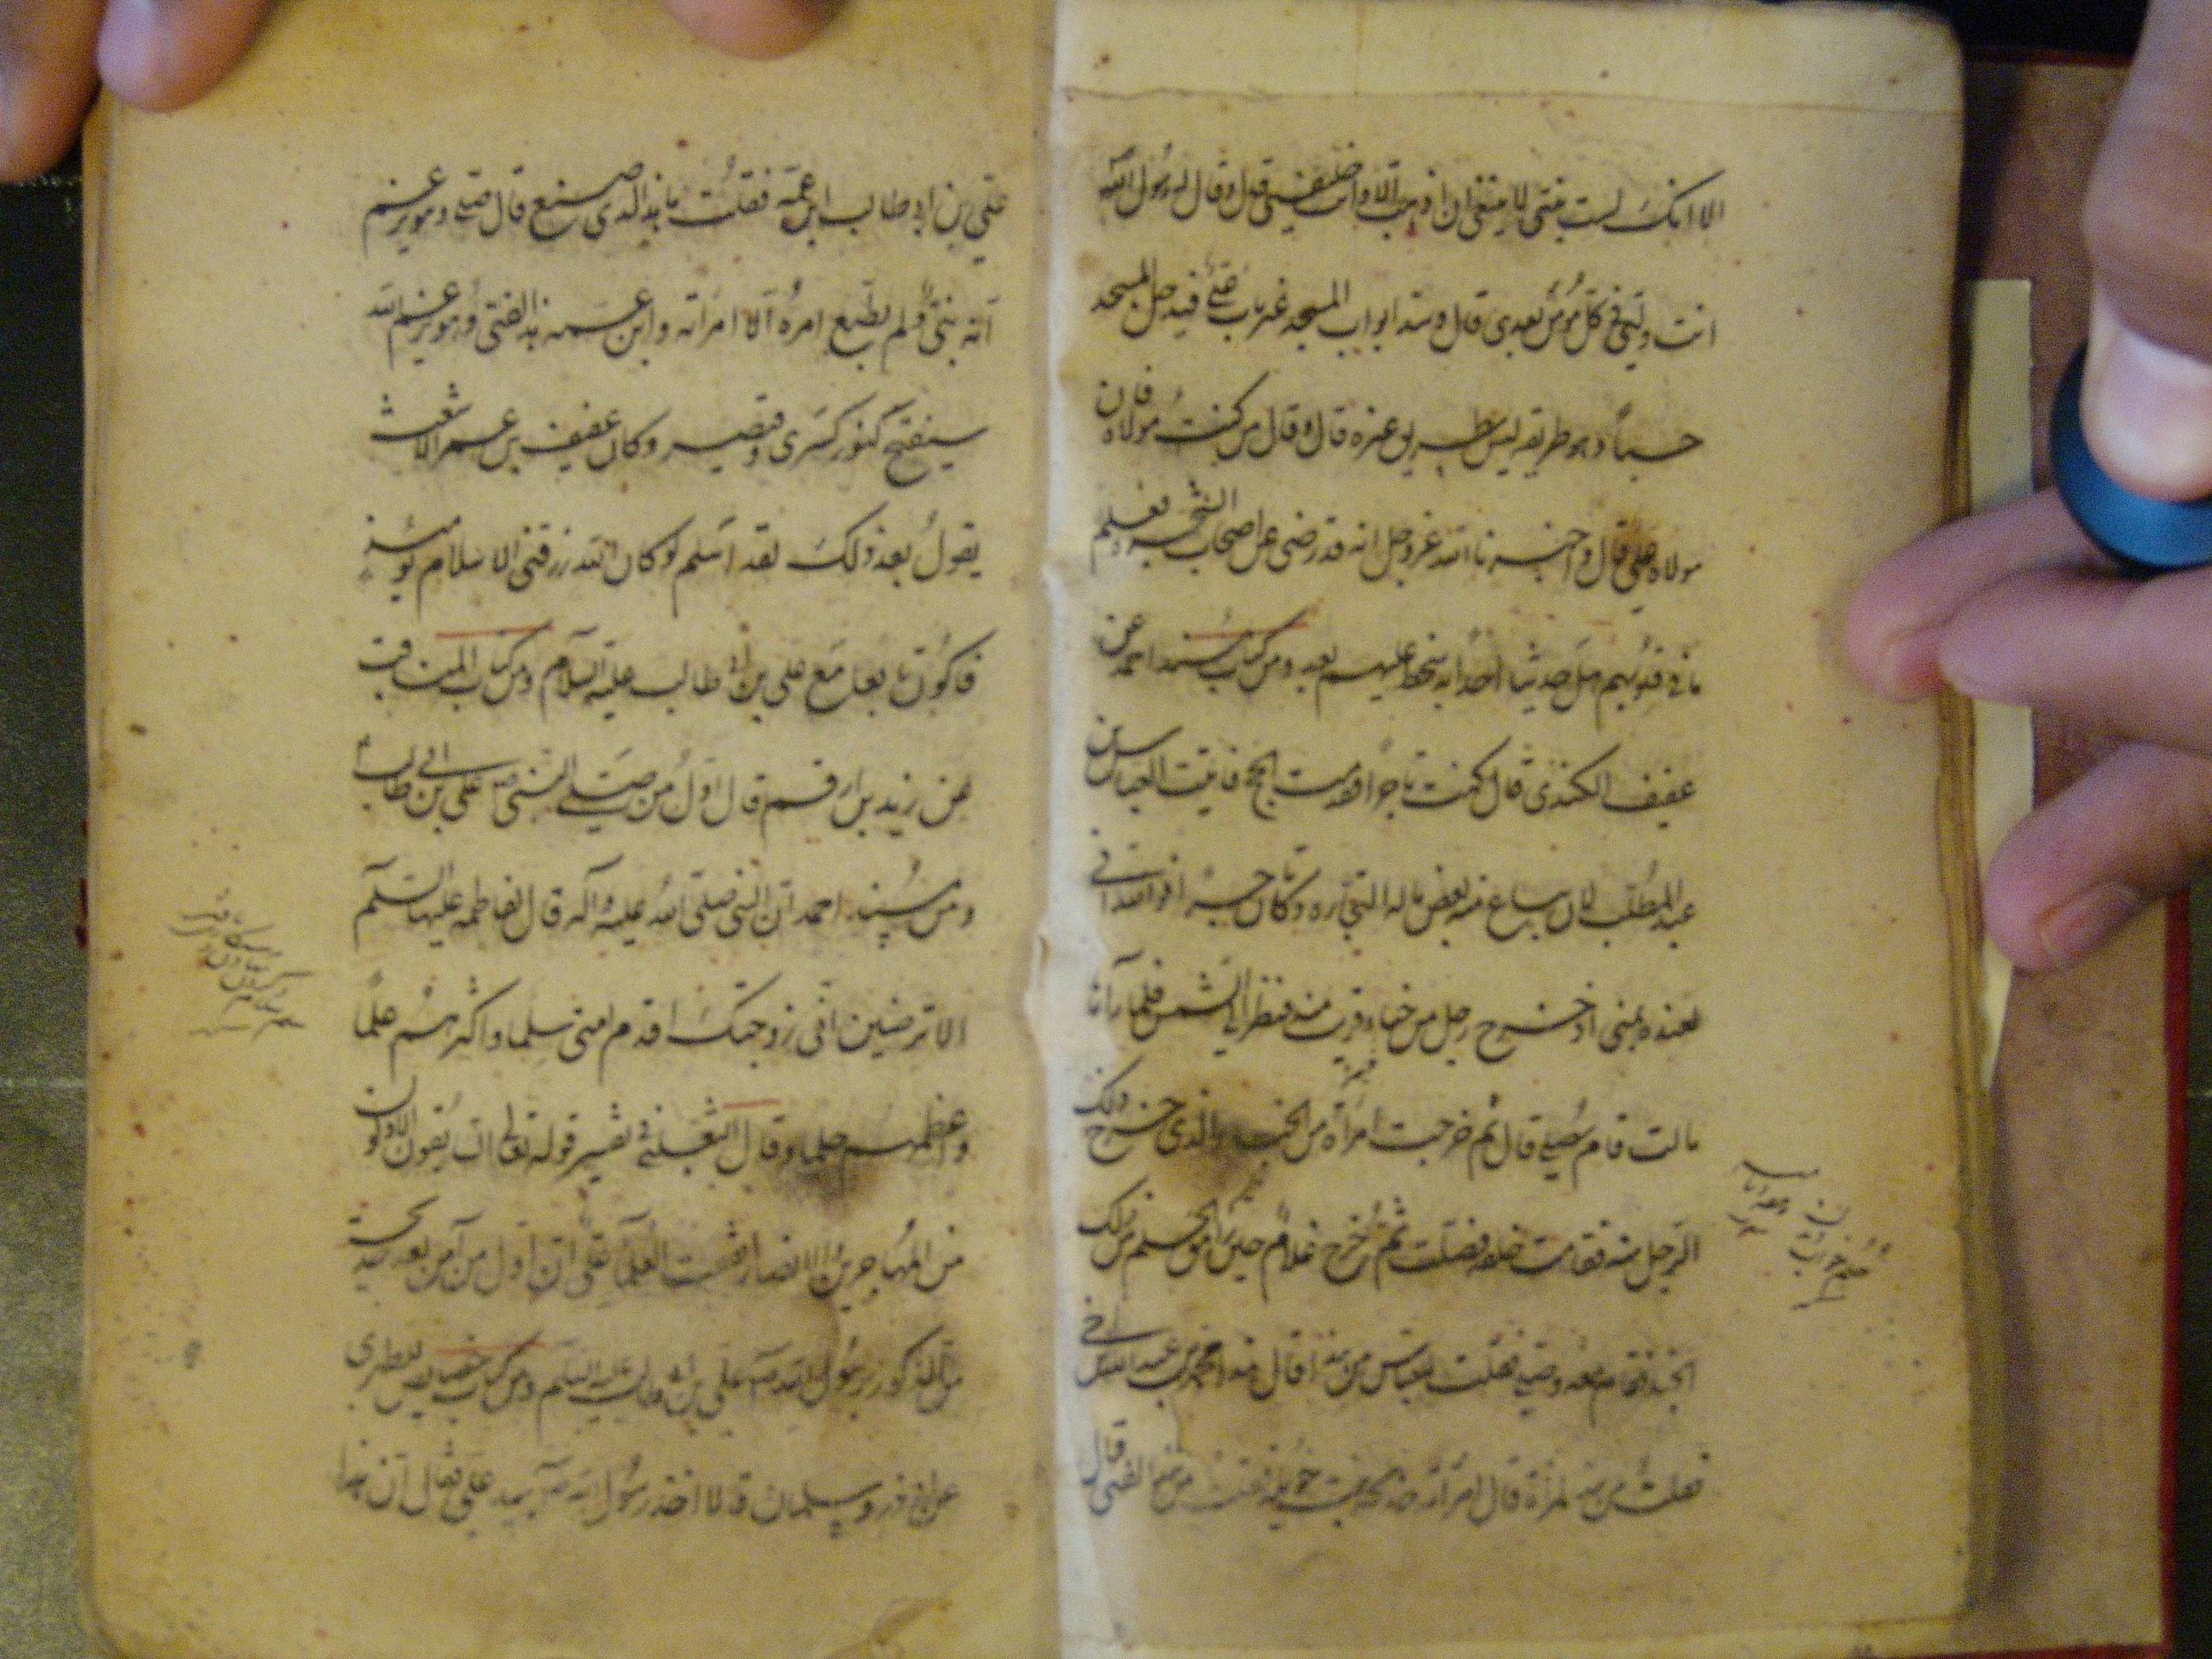 الا انك لست بنبي لا ينبغي ان اذهب الا وانت خليفتي قال وقال له رسول الله
انت وليي في كل مؤمن بعدي قال وسد ابواب المسجد غير باب علي فيدخل المسجد
جنبا وهو طريقه ليس له طريق غيره قال وقال من كنت مولاه فان
مولاه علي قال واخبرنا الله عز وجل انه قد رضي عن اصحاب الشجرة فعلم
ما في قلوبهم هل حدثنا احد انه سخط عليهم بعد ومن كتاب مسند احمد عن
عفيف الكندي قال كنت تاجرا فقدمت الحج فاتيت العباس بن
عبد المطلب لابتاع منه بعض ماله التجارة وكان تاجرا فوالله اني
لعنده بمنى اذ خرج رجل من خباء قريب منه فنظر الى الشمس فلما رآها
مالت قام يصلي قال ثم خرجت امرأة من الخباء الذي خرج ذلك
الرجل منه فقامت خلفه فصلت ثم خرج غلام حين راهق الحلم من ذلك
الخباء فقام معه وصلى فقلت للعباس من هذا قال هذا محمد بن عبد الله
فقلت من هذه المرأة قال امرأته خديجة بنت خويلد فقلت من هذا الفتى قال
علي بن ابي طالب ابن عمه فقلت ما هذا الذي يصنع قال يصلي وهو يزعم
انه نبي ولم يطع امره الا امرأته وابن عمه هذا الفتى وهو يزعم انه
سيفتح كنوز كسرى وقيصر وكان عفيف بن عم الاشعث
يقول بعد ذلك لقد اسلم لو كان الله رزقني الاسلام يومئذ
فاكون تابعا مع علي بن ابي طالب عليه السلام ومن كتاب المناقب
عن زيد بن ارقم قال اول من صلى مع النبي ص علي بن ابي طالب
ومن مسند احمد ان النبي صلى الله عليه وآله قال لفاطمه عليها السلم
الا ترضين اني زوجتك اقدم امتي سلما واكثرهم علما
واعظمهم حلما وقال الثعلبي في تفسير قوله تعالى السابقون الاولون
من المهاجرين والانصار اتفقت العلمآ على ان اول من آمن بعد خديجة
من الذكور برسول الله ص علي بن ابي طالب عليه السلم ومن كتاب خصايص للطبري
عن ابي ذر وسلمان قالا اخذ رسول الله ص بيد علي فقال ان هذا